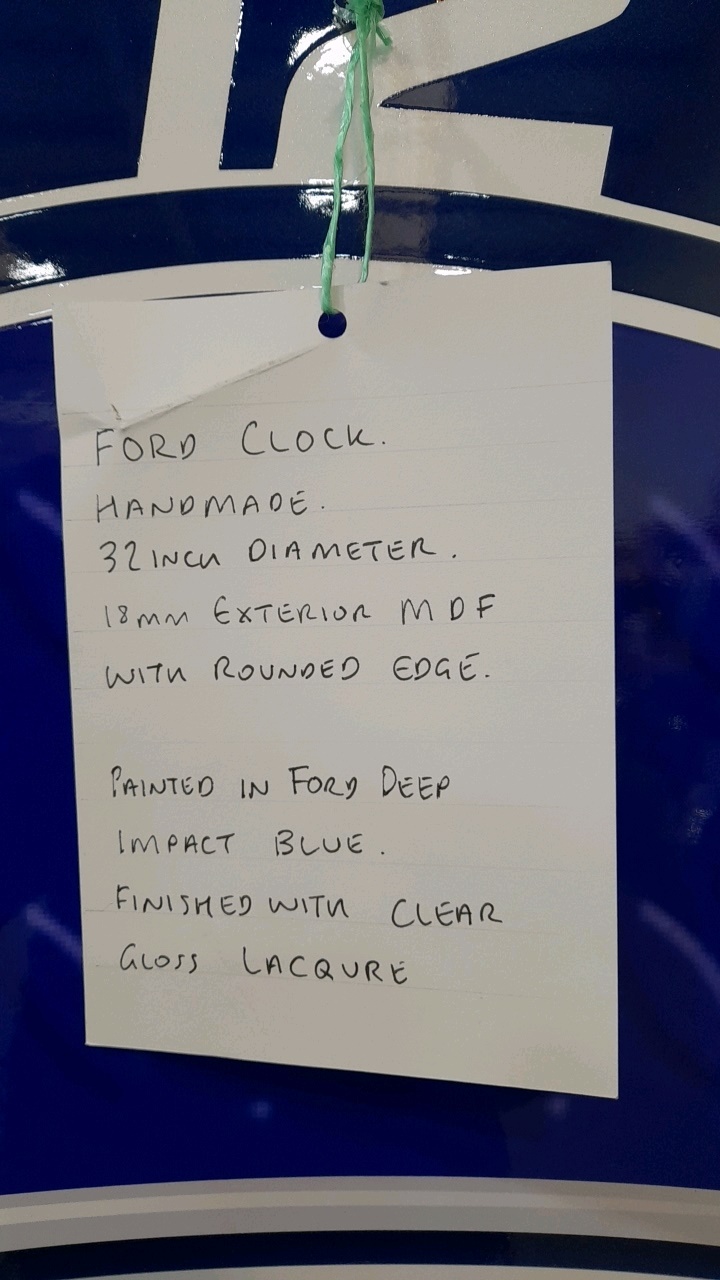 FORD CLOCK.
HANDMADE.
32 INCH DIAMETER.
18mm EXTERIOR MDF
WITH ROUNDED EDGE.
PAINTED IN FORD DEEP
IMPACT BLUE.
FINISHED WITH CLEAR
GLOSS LACQURE